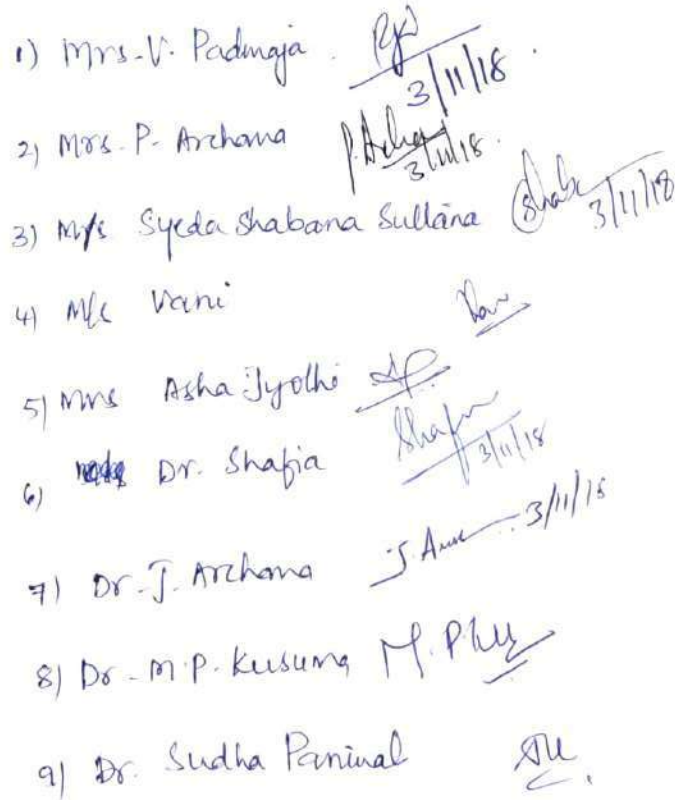 1) Mrs. V. Padmaja.
3/11/18.
2) Mrs. P. Archana
3/11/18.
3) Mrs Syeda Shabana Sultana
3/11/18
4) Mrs Vani
5) Mrs Asha Jyothi
6) Dr. Shafia
3/11/18
7) Dr. J. Archana
3/11/18
8) Dr. M.P. Kusuma M.P.
9) Dr. Sudha Paniwal